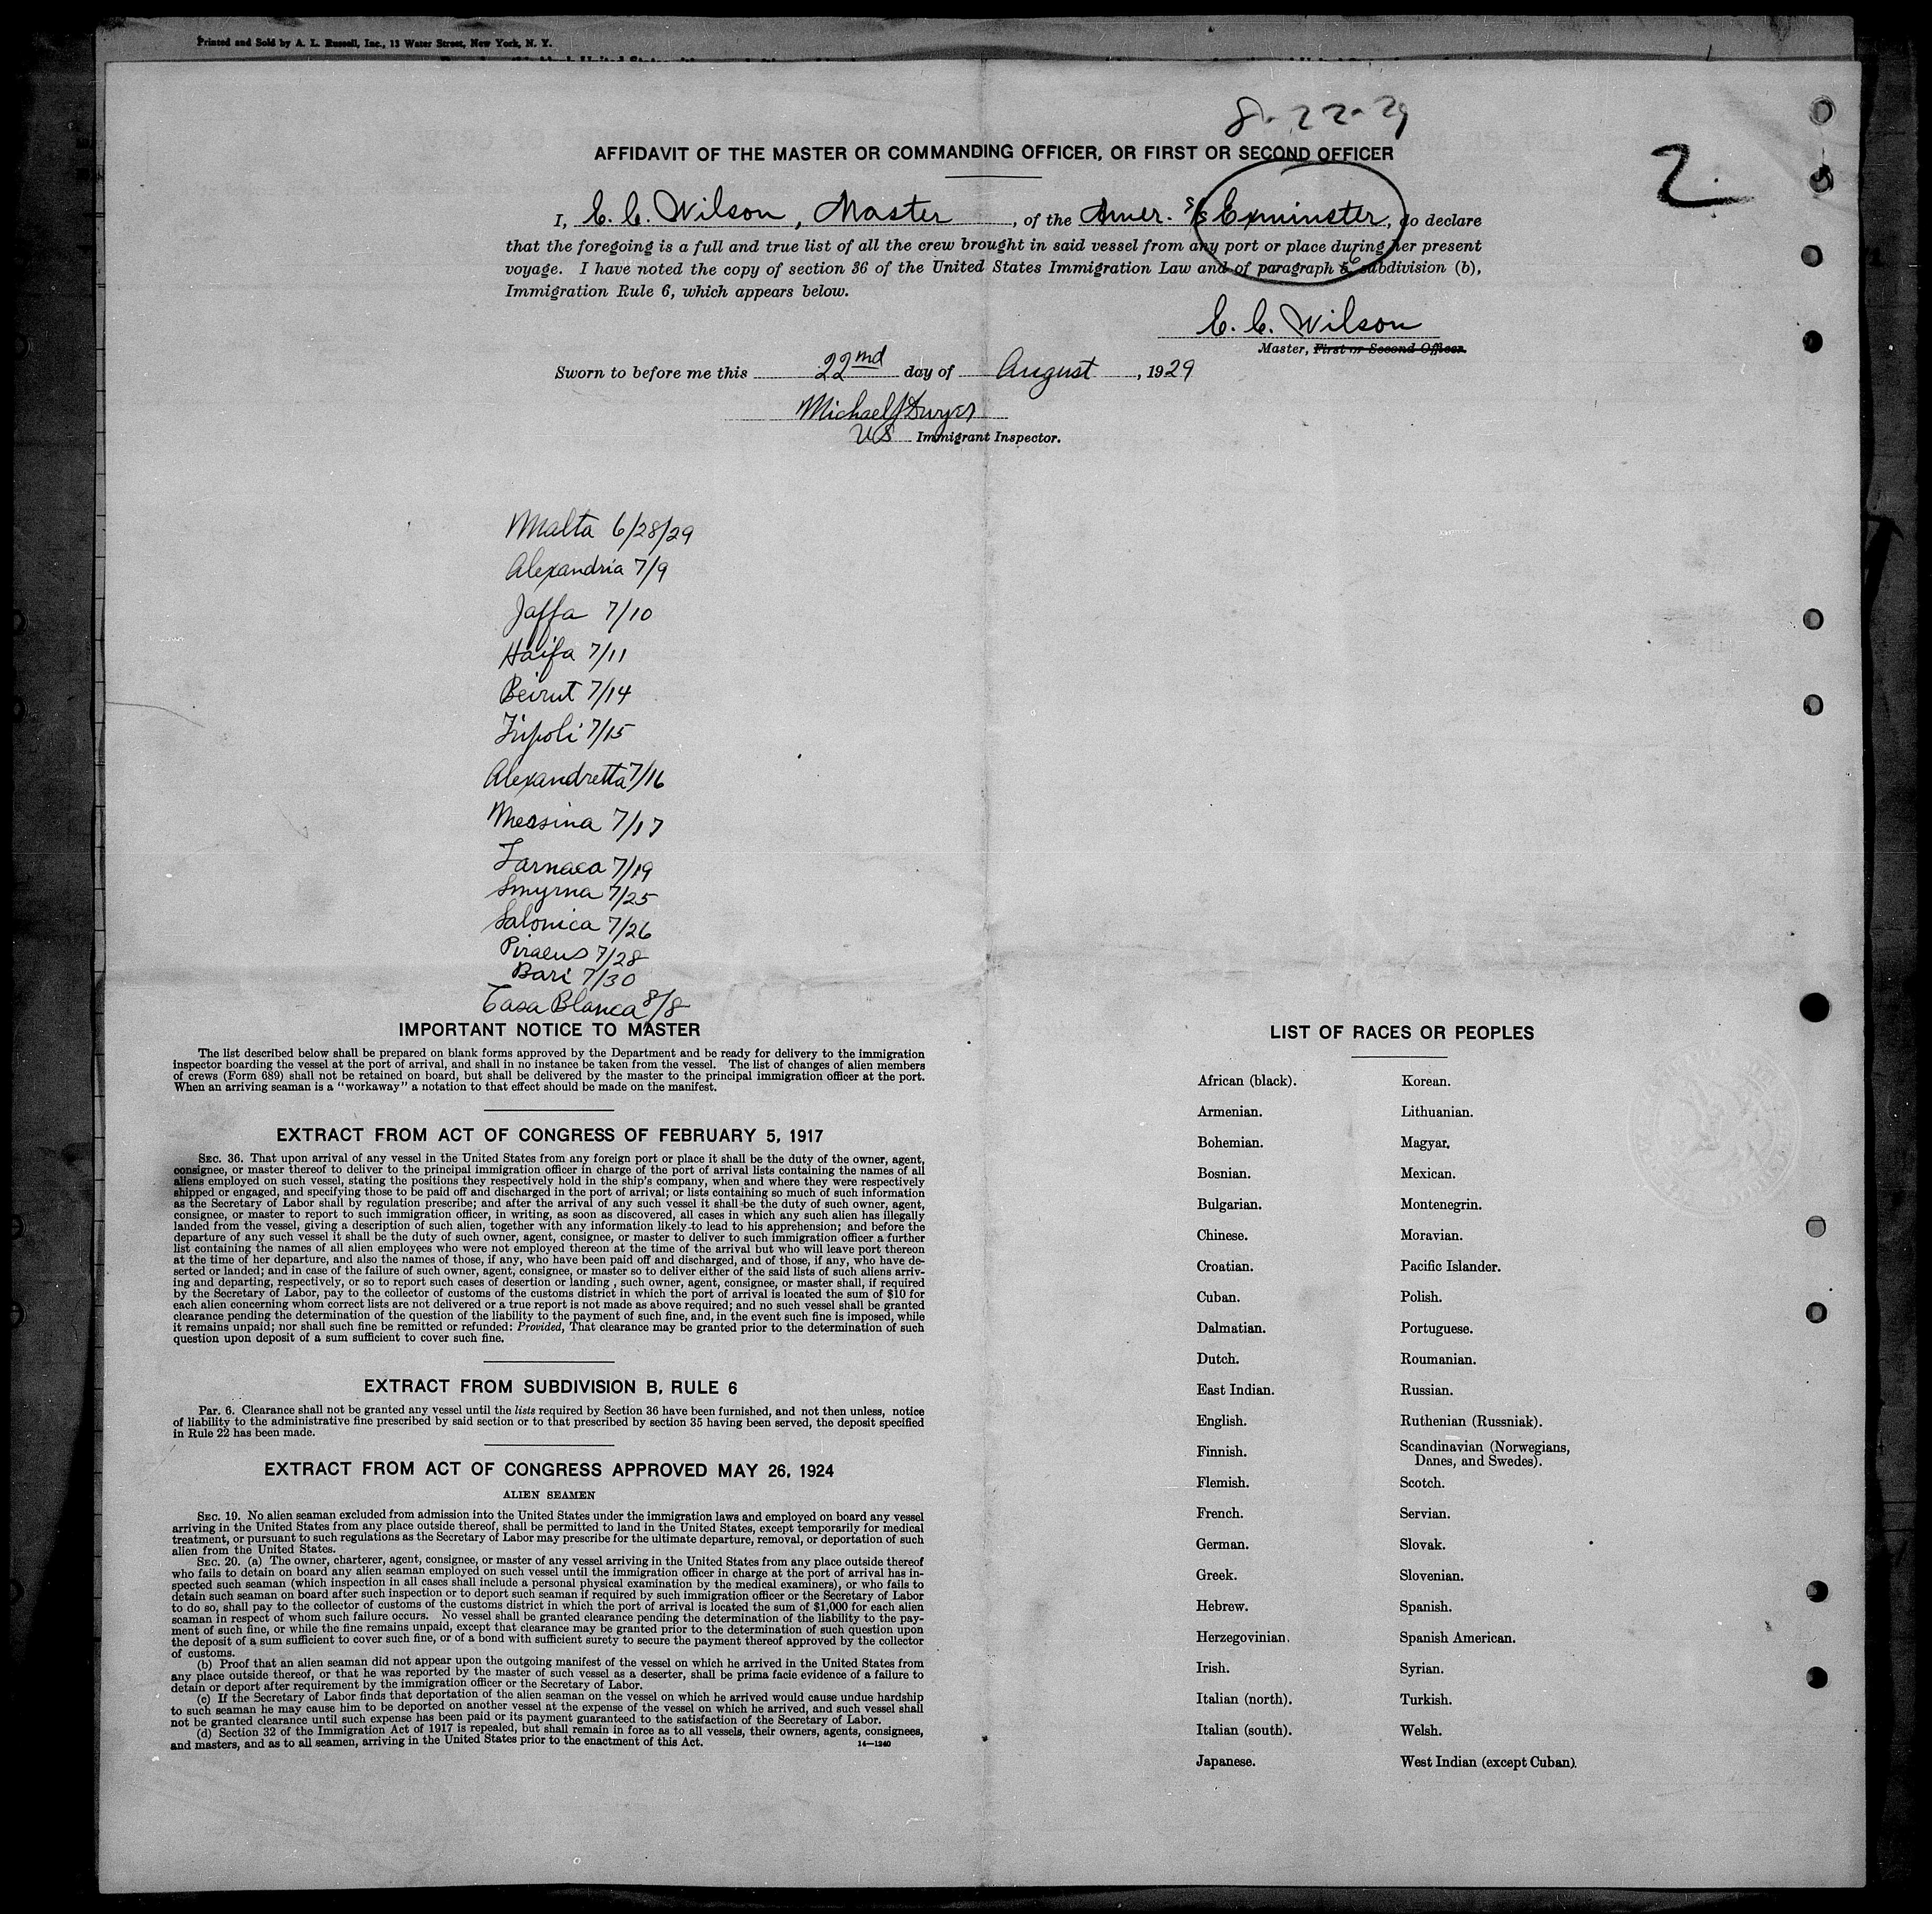 Printed and Sold by A. L. Russell, Inc., 13 Water Street, New York, N. Y.
8-22-29
2
AFFIDAVIT OF THE MASTER OR COMMANDING OFFICER, OR FIRST OR SECOND OFFICER
I, C. C. Wilson, Master, of the Amer. S/S Exminster, do declare
that the foregoing is a full and true list of all the crew brought in said vessel from any port or place during her present
voyage. I have noted the copy of section 36 of the United States Immigration Law and of paragraph 6 subdivision (b),
Immigration Rule 6, which appears below.
C. C. Wilson
Master, First or Second Officer.
Sworn to before me this 22nd day of August, 1929
Michael J Dwyer
US Immigrant Inspector.
Malta 6/28/29
Alexandria 7/9
Jaffa 7/10
Haifa 7/11
Beirut 7/14
Tripoli 7/15
Alexandretta 7/16
Messina 7/17
Larnaca 7/19
Smyrna 7/25
Salonica 7/26
Piraeus 7/28
Bari 7/30
Casa Blanca 8/8
IMPORTANT NOTICE TO MASTER
The list described below shall be prepared on blank forms approved by the Department and be ready for delivery to the immigration
inspector boarding the vessel at the port of arrival, and shall in no instance be taken from the vessel. The list of changes of alien members
of crews (Form 689) shall not be retained on board, but shall be delivered by the master to the principal immigration officer at the port.
When an arriving seaman is a "workaway" a notation to that effect should be made on the manifest.
EXTRACT FROM ACT OF CONGRESS OF FEBRUARY 5, 1917
SEC. 36. That upon arrival of any vessel in the United States from any foreign port or place it shall be the duty of the owner, agent,
consignee, or master thereof to deliver to the principal immigration officer in charge of the port of arrival lists containing the names of all
aliens employed on such vessel, stating the positions they respectively hold in the ship's company, when and where they were respectively
shipped or engaged, and specifying those to be paid off and discharged in the port of arrival; or lists containing so much of such information
as the Secretary of Labor shall by regulation prescribe; and after the arrival of any such vessel it shall be the duty of such owner, agent,
consignee, or master to report to such immigration officer, in writing, as soon as discovered, all cases in which any such alien has illegally
landed from the vessel, giving a description of such alien, together with any information likely to lead to his apprehension; and before the
departure of any such vessel it shall be the duty of such owner, agent, consignee, or master to deliver to such immigration officer a further
list containing the names of all alien employees who were not employed thereon at the time of the arrival but who will leave port thereon
at the time of her departure, and also the names of those, if any, who have been paid off and discharged, and of those, if any, who have de-
serted or landed; and in case of the failure of such owner, agent, consignee, or master so to deliver either of the said lists of such aliens arriv-
ing and departing, respectively, or so to report such cases of desertion or landing , such owner, agent, consignee, or master shall, if required
by the Secretary of Labor, pay to the collector of customs of the customs district in which the port of arrival is located the sum of $10 for
each alien concerning whom correct lists are not delivered or a true report is not made as above required; and no such vessel shall be granted
clearance pending the determination of the question of the liability to the payment of such fine, and, in the event such fine is imposed, while
it remains unpaid; nor shall such fine be remitted or refunded: Provided, That clearance may be granted prior to the determination of such
question upon deposit of a sum sufficient to cover such fine.
EXTRACT FROM SUBDIVISION B, RULE 6
Par. 6. Clearance shall not be granted any vessel until the lists required by Section 36 have been furnished, and not then unless, notice
of liability to the administrative fine prescribed by said section or to that prescribed by section 35 having been served, the deposit specified
in Rule 22 has been made.
EXTRACT FROM ACT OF CONGRESS APPROVED MAY 26, 1924
ALIEN SEAMEN
SEC. 19. No alien seaman excluded from admission into the United States under the immigration laws and employed on board any vessel
arriving in the United States from any place outside thereof, shall be permitted to land in the United States, except temporarily for medical
treatment, or pursuant to such regulations as the Secretary of Labor may prescribe for the ultimate departure, removal, or deportation of such
alien from the United States.
SEC. 20. (a) The owner, charterer, agent, consignee, or master of any vessel arriving in the United States from any place outside thereof
who fails to detain on board any alien seaman employed on such vessel until the immigration officer in charge at the port of arrival has in-
spected such seaman (which inspection in all cases shall include a personal physical examination by the medical examiners), or who fails to
detain such seaman on board after such inspection or to deport such seaman if required by such immigration officer or the Secretary of Labor
to do so, shall pay to the collector of customs of the customs district in which the port of arrival is located the sum of $1,000 for each alien
seaman in respect of whom such failure occurs. No vessel shall be granted clearance pending the determination of the liability to the pay-
ment of such fine, or while the fine remains unpaid, except that clearance may be granted prior to the determination of such question upon
the deposit of a sum sufficient to cover such fine, or of a bond with sufficient surety to secure the payment thereof approved by the collector
of customs.
(b) Proof that an alien seaman did not appear upon the outgoing manifest of the vessel on which he arrived in the United States from
any place outside thereof, or that he was reported by the master of such vessel as a deserter, shall be prima facie evidence of a failure to
detain or deport after requirement by the immigration officer or the Secretary of Labor.
(c) If the Secretary of Labor finds that deportation of the alien seaman on the vessel on which he arrived would cause undue hardship
to such seaman he may cause him to be deported on another vessel at the expense of the vessel on which he arrived, and such vessel shall
not be granted clearance until such expense has been paid or its payment guaranteed to the satisfaction of the Secretary of Labor.
(d) Section 32 of the Immigration Act of 1917 is repealed, but shall remain in force as to all vessels, their owners, agents, consignees,
and masters, and as to all seamen, arriving in the United States prior to the enactment of this Act.
14—1240
LIST OF RACES OR PEOPLES
African (black). Korean.
Armenian. Lithuanian.
Bohemian. Magyar.
Bosnian. Mexican.
Bulgarian. Montenegrin.
Chinese. Moravian.
Croatian. Pacific Islander.
Cuban. Polish.
Dalmatian. Portuguese.
Dutch. Roumanian.
East Indian. Russian.
English. Ruthenian (Russniak).
Finnish. Scandinavian (Norwegians,
Danes, and Swedes).
Flemish. Scotch.
French. Servian.
German. Slovak.
Greek. Slovenian.
Hebrew. Spanish.
Herzegovinian. Spanish American.
Irish. Syrian.
Italian (north). Turkish.
Italian (south). Welsh.
Japanese. West Indian (except Cuban).